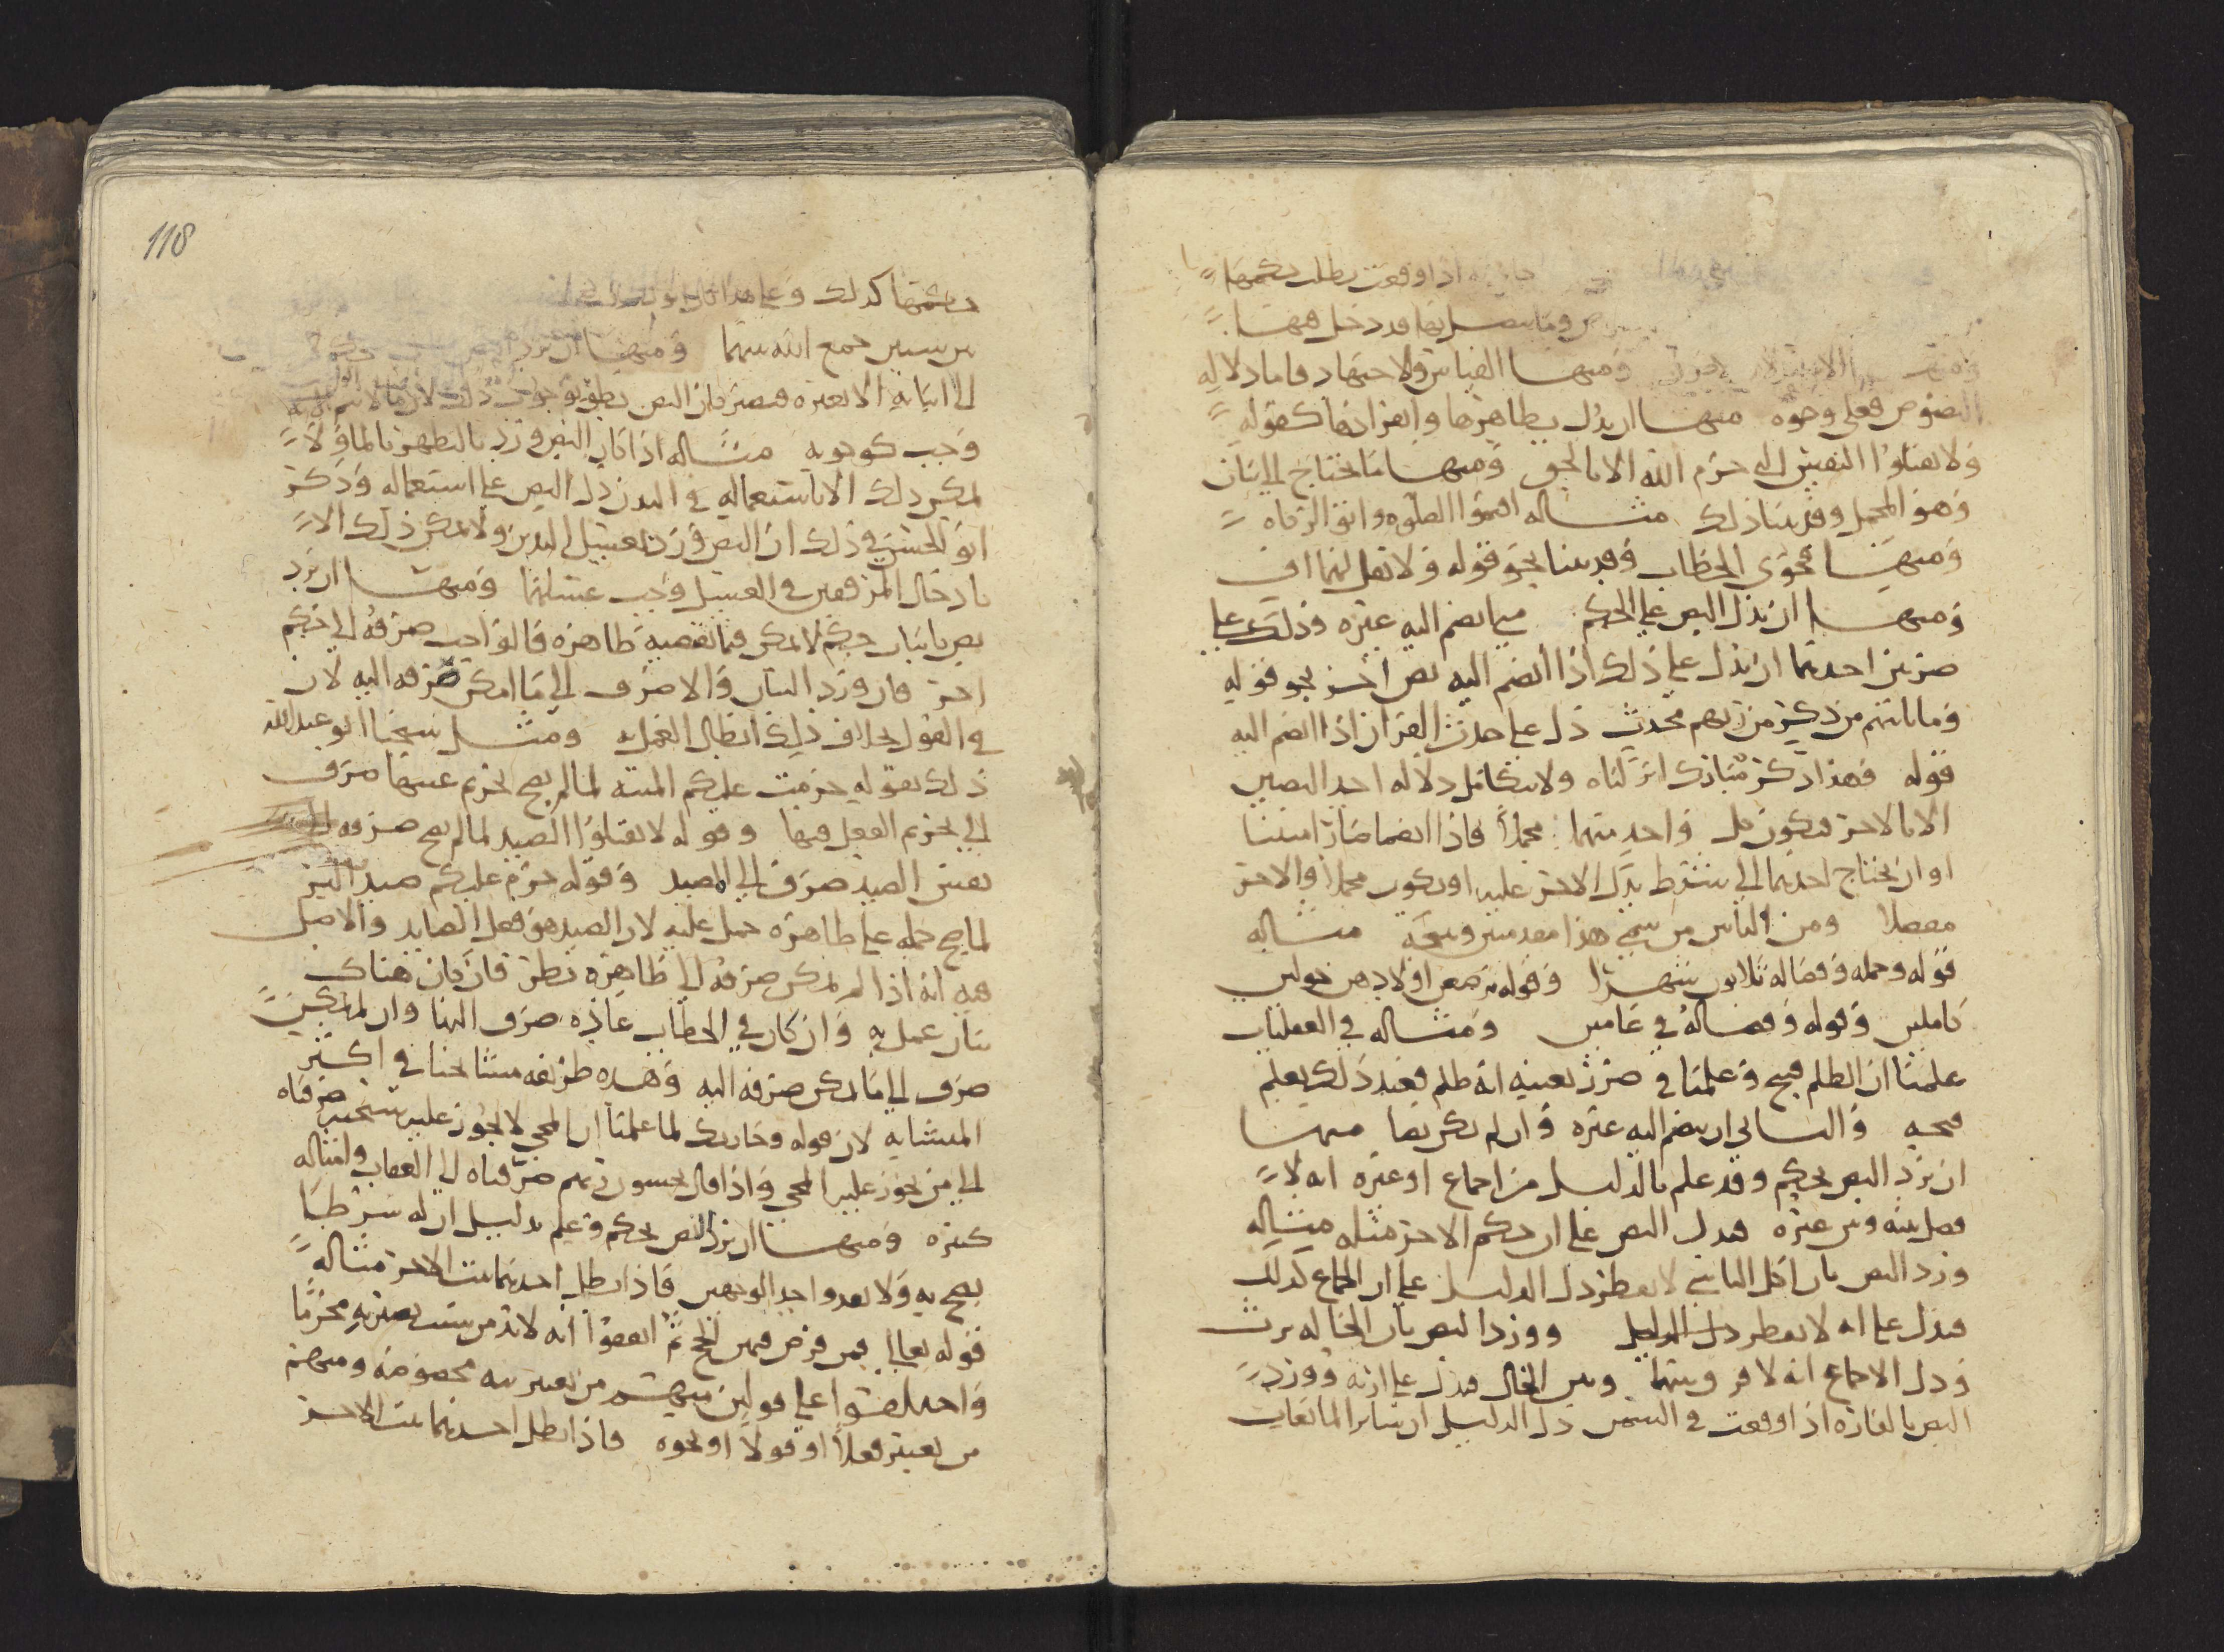 اذا وقعت بطلت حكمها
وما يتصل بها قد دخل فيها
ومنها الاستدلال ومنها القياس والاجتهاد فاما دلالة
النصوص فعلى وجوه منها ان يدل بظاهرها وانفرادها كقوله
ولا تقتلوا النفس التي حرم الله الا بالحق ومنها ما يحتاج الى بيان
وهو المجمل وقد بينا ذلك مثاله اقيموا الصلوه واتوا الزكاه
ومنها فحوى الخطاب وقد بينا نحو قوله ولا تقل لهما اف
ومنها ان يدل النص على الحكم فيما يضم اليه غيره وذلك على
ضربين احدهما ان يدل على ذلك اذا انضم اليه نص اخر نحو قوله
وما ياتيهم من ذكر من ربهم محدث دل على حدث القران اذا انضم اليه
قوله وهذا ذكر مبارك انزلناه ولا يتكامل دلاله احد النصين
الا بالاخر فيكون كل واحد منهما مجملا فاذا انضما صارا مبينا
او ان يحتاج احدهما الى شرط يدل الاخر عليه او يكون مجملا والاخر
مفصلا ومن الناس من سمى هذا مقدمتين ونتيجة مثاله
قوله وحمله وفصاله ثلاثون شهرا وقوله يرضعن اولادهن حولين
كاملين وقوله وفصاله في عامين ومثاله في العقليات
علمنا ان الظلم قبيح وعلمنا في ضرر بعينه انه ظلم فعند ذلك يعلم
قبحه والثاني ان ينضم اليه غيره وان لم يكن نصا منها
ان يرد النص بحكم وقد علم بالدليل من اجماع او غيره انه لا
فصل بينه وبين غيره فدل النص على ان حكم الاخر مثله مثاله
ورد النص بان اكل الناسي لا يفطر دل الدليل على ان الجماع كذلك
فدل على انه لا يفطر دل الدليل وورد النص بان الخاله يرث
ودل الاجماع انه لا فرق بينها وبين الخال فدل على ارثه وورد
النص بالفاره اذا وقعت في السمن دل الدليل ان سائر المائعات
118
حكمها كذلك وعلى هذا
بين سببين جمع الله بينهما ومنها ان يرد
الى اثباته الا بغيره فيصير كان النص نطق بوجوب ذلك لان ما لا يتم الواجب الا به
وجب كوجوبه مثاله اذا كان النص ورد بالتطهر بالماء ولا
يمكن ذلك الا باستعماله في البدن دل النص على استعماله وذكر
ابو الحسين في ذلك ان النص ورد بغسل اليدين ولا يمكن ذلك الا
بادخال المرفقين في الغسل وجب غسلهما ومنها ان يرد
نص باثبات حكم لا يمكن فيما تقتضيه ظاهره قالوا يجب صرفه الى حكم
اخر فان ورد البيان والا صرف الى ما امكن صرفه اليه لان
في القول بخلاف ذلك ابطال العمل به ومثل شيخنا ابو عبدالله
ذلك بقوله حرمت عليكم الميته لما لم يصح تحريم عينها صرف
الى تحريم الفعل فيها وقوله لا تقتلوا الصيد لما لم يصح صرفه الى
نفس الصيد صرف الى المصيد وقوله حرم عليكم صيد البر
لما صح حمله على ظاهره حمل عليه لان الصيد هو فعل الصايد والاصل
فيه انه اذا لم يمكن صرفه الى ظاهره نظر فان كان هناك
بيان عمل به وان كان في الخطاب عاده صرف اليها وان لم يمكن
صرف الى ما يمكن صرفه اليه وهذه طريقه مشائخنا في اكثر
المتشابه لان قوله وجا ربك لما علمنا ان المجي لا يجوز عليه سبحنه صرفناه
الى من يجوز عليه المجي واذا قال يخشون ربهم صرفناه الى العقاب وامثاله
كثيره ومنها ان يرد النص بحكم وعلم بدليل ان له شرطا
يصح به ولا يعدو احد الوجهين فاذا بطل احدهما ثبت الاخر مثاله
قوله تعالى فمن فرض فيهن الحج ثم اتفقوا انه لا بد من سبب يصير به محرما
واختلفوا على قولين منهم من يعتبر نيه مخصوصه ومنهم
من يعتبر فعلا او قولا او نحوه فاذا بطل احدهما ثبت الاخر